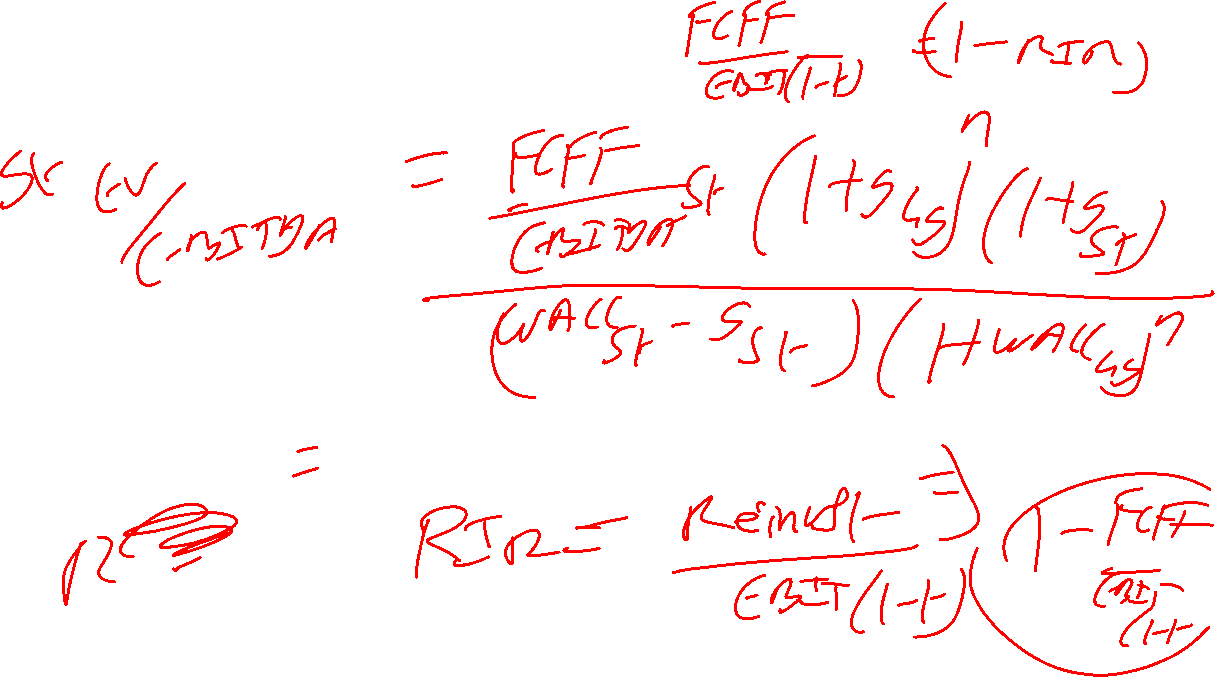 FCFF / EBIT(1-t) = (1 - RIR)
St EV/EBITDA = FCFF/EBITDA St (1+g HG)^n (1+g St) / (WACC St - g St) (1+WACC HG)^n
=
RIR = Reinvst / EBIT(1-t) => 1 - FCFF / EBIT(1-t)